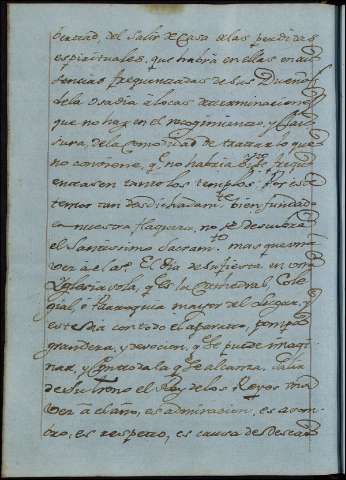 ocasion, del Salir de Casa a las perdidas
espirituales, que habrá en ellas en au
sencias frequentadas de sus Dueños
de la osadia á locas determinaciones
que no hay en el recogimiento, y Clau
sura, de la Comodidad de tratar lo que
no conviene, q. no habria si no se frequ
entasen tanto los templos. Por este
temor tan desdichadam.te bien fundado
en nuestra flaqueza, no se descubre
el Santissimo Sacram.to mas que una
vez á el año. El dia de su fiesta en una
Yglesia sola, q. es la Cathedral, Cole
gial, ó Parroquia mayor del Lugar, y
este dia con todo el aparato, pompa
grandeza, y devocion, q. se puede imagi
nar, y Con toda la q. se alcanza. Salir
de su trono el Rey de los Reyes una
vez á el año, es admiracion, es asom
bro, es respeto, es causa de desear